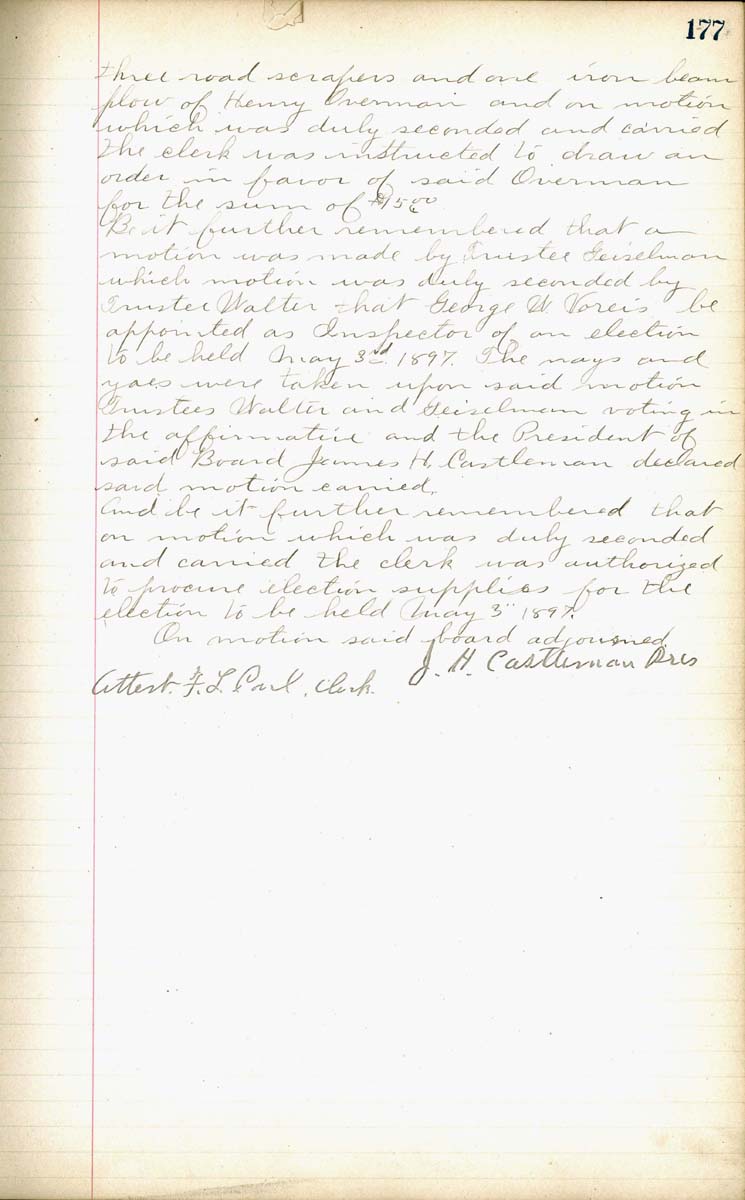 177
three road scrapers and one iron beam
plow of Henry Overman and on motion
which was duly seconded and carried
the clerk was instructed to draw an
order in favor of said Overman
for the sum of $15.00
Be it further remembered that a
motion was made by Trustee Geiselman
which motion was duly seconded by
Trustee Walter that George W. Voreis be
appointed as Inspector of an election
to be held May 3rd 1897. The nays and
yaes were taken upon said motion
Trustees Walter and Geiselman voting in
the affirmative and the President of
said Board James H. Castleman declared
said motion carried.
And be it further remembered that
on motion which was duly seconded
and carried the clerk was authorized
to procure election supplies for the
election to be held May 3" 1897.
On motion said board adjourned.
J. H. Castleman Pres
Attest. F. L. Carl, Clerk.